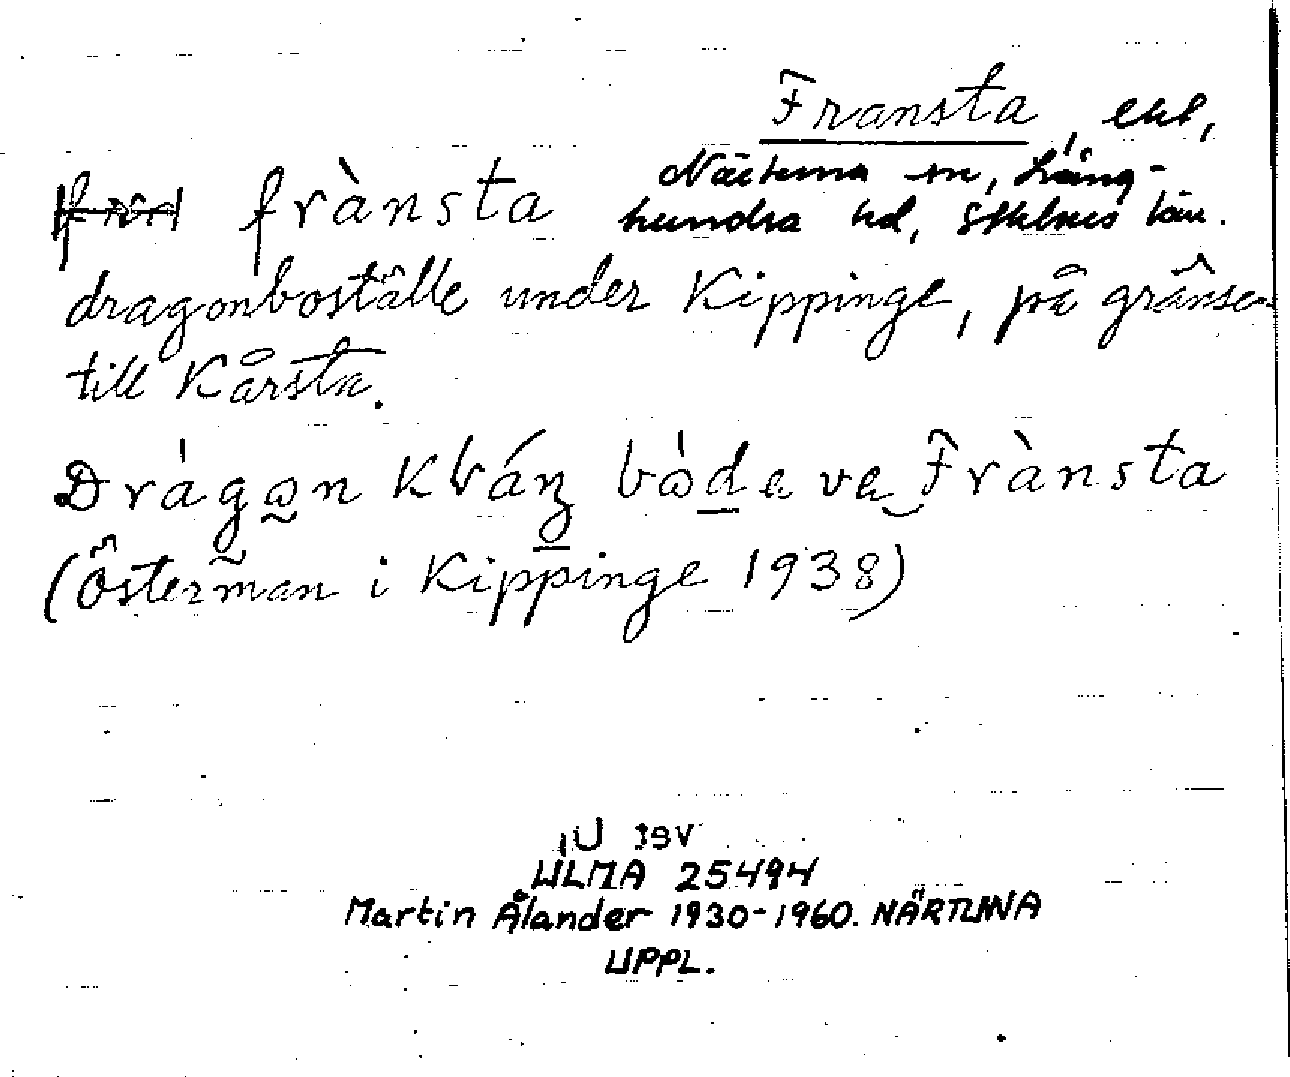 Fransta, enl,
Närtuna sn, Lång-
hundra hd, Sthlms län.
frànsta
dragonboställe under Kippinge, på gränsen
till Kårsta.
Drágən Kváŋ bòda va Frànsta
(Österman i Kippinge 1938)
ULMA 25494
Martin Ålander 1930-1960. NÄRTUNA
UPPL.